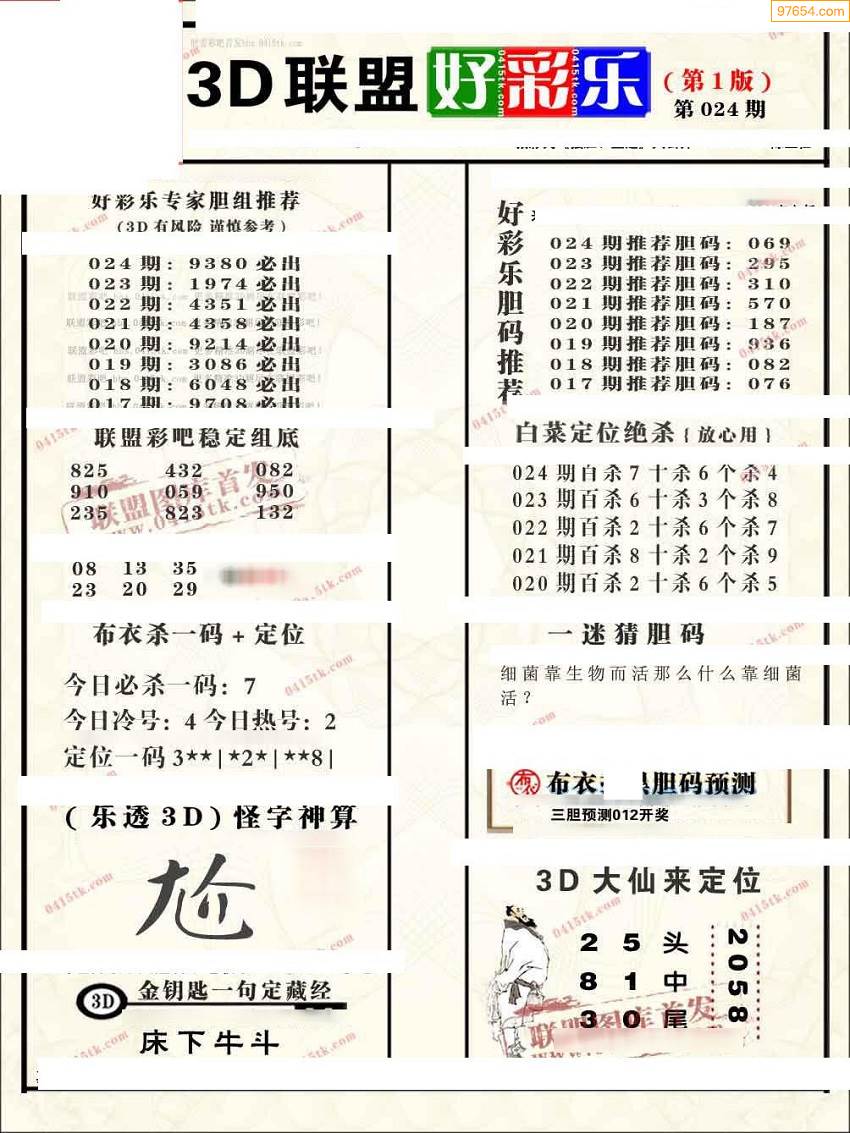 97654.com
3D联盟好彩乐
(第1版)
第024期
好彩乐专家胆组推荐
(3D有风险 谨慎参考)
024期:9380必出
023期:1974必出
022期:4351必出
021期:4358必出
020期:9214必出
019期:3086必出
018期:6048必出
017期:9708必出
联盟彩吧稳定组底
825 432 082
910 059 950
235 823 132
08 13 35
23 20 29
布衣杀一码+定位
今日必杀一码:7
今日冷号:4 今日热号:2
定位一码3**|*2*|**8|
(乐透3D)怪字神算
尬
3D 金钥匙一句定藏经
床下牛斗
好彩乐胆码推荐
024期推荐胆码:069
023期推荐胆码:295
022期推荐胆码:310
021期推荐胆码:570
020期推荐胆码:187
019期推荐胆码:936
018期推荐胆码:082
017期推荐胆码:076
白菜定位绝杀{放心用}
024期百杀7十杀6个杀4
023期百杀6十杀3个杀8
022期百杀2十杀6个杀7
021期百杀8十杀2个杀9
020期百杀2十杀6个杀5
一迷猜胆码
细菌靠生物而活那么什么靠细菌
活?
布衣 胆码预测
三胆预测012开奖
3D大仙来定位
2 5 头
8 1 中
3 0 尾
2058
联盟图库首发
www.0415tk.com
0415tk.com